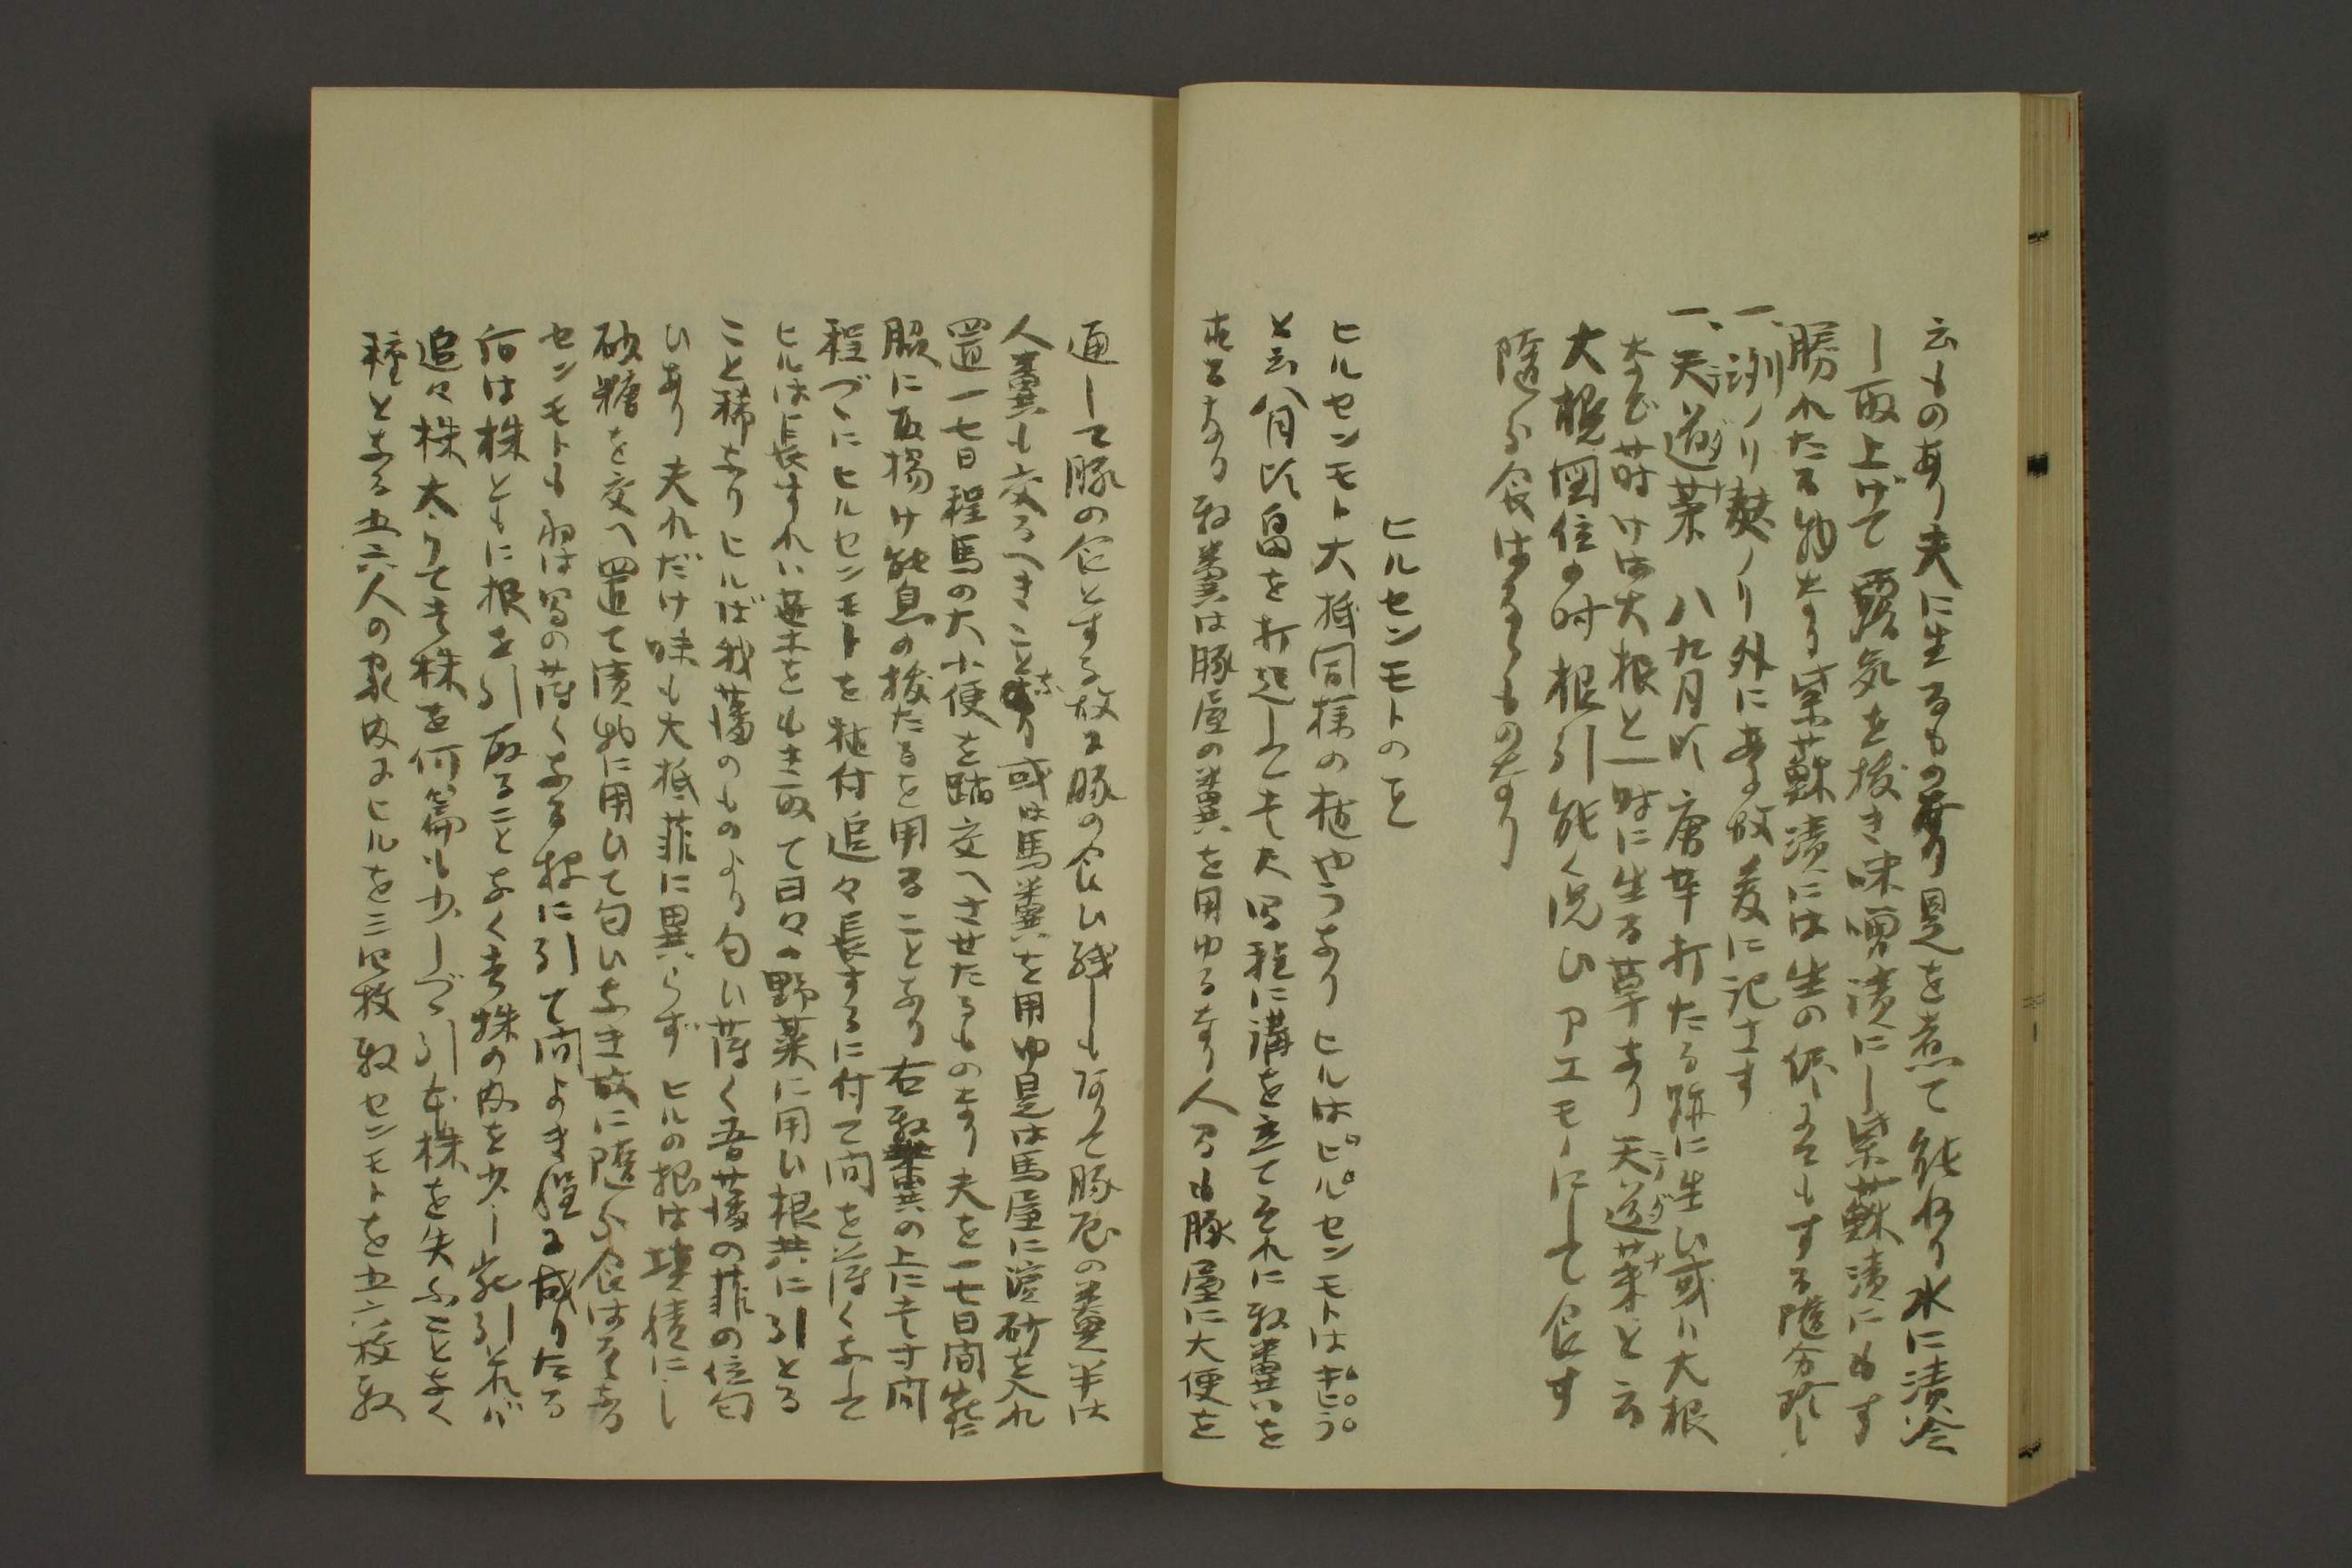 云ものあり夫に生るものなり是を煮て能ねり水に漬冷
し取上げて露気を抜き味噌漬にし紫蘇漬にもす
勝れたる物なり紫蘇漬には生の侭よそもする随分珍し
一、渕ノリ麸ノリ外にある故爰に記さす
一、天道菜 八九月比唐芋打たる跡に生い或は大根
なぞ蒔けは大根と一時に生る草なり天道菜と云
大根図位の時根引能く洗ひアエモノにして食す
随分食はるゝもの也なり
ヒルセンモトのこと
ヒルセンモト大抵同様の植やうなりヒルはピルセンモトはキビラ
と云八月比畠を打起して尤尺四程に溝を立てそれに敷糞を
するなり敷糞は豚屋の糞を用ゆるなり人るも豚屋に大便を
通して豚の食とする故又豚の食ひ残しも有て豚屋の糞半は
人糞も交るへきことなり或は馬糞を用ゆ是は馬屋に濱砂を入れ
置一七日程馬の大小便を踏交へさせたるものなり夫を一七日間能に
脇に取揚け能息の抜たるを用ることなり右敷糞の上に壱寸間
程づゝにヒルセンモトを植付追々長するに付て間を薄くなして
ヒルは長すれい葉をもき取て日々の野菜に用い根共に引とる
こと稀なりヒルば我藩のものより匂い薄く吾藩の韮の位匂
ひあり夫れだけ味も大抵韮に異らずヒルの根は塩漬にし
砂糖を交へ置て漬物に用ひて匂ひなき故に随分食はるゝ者
センモトも初は葛の薄くなる様に引て間よき程に成りたる
何は株ともに根を引取ることなく壱株の内を少し宛引それが
追々株太りても株を何篇も少しづゝ引本株を失ふことなく
種となる五六人の家内にヒルを三四枚敷センモトを五六枚敷